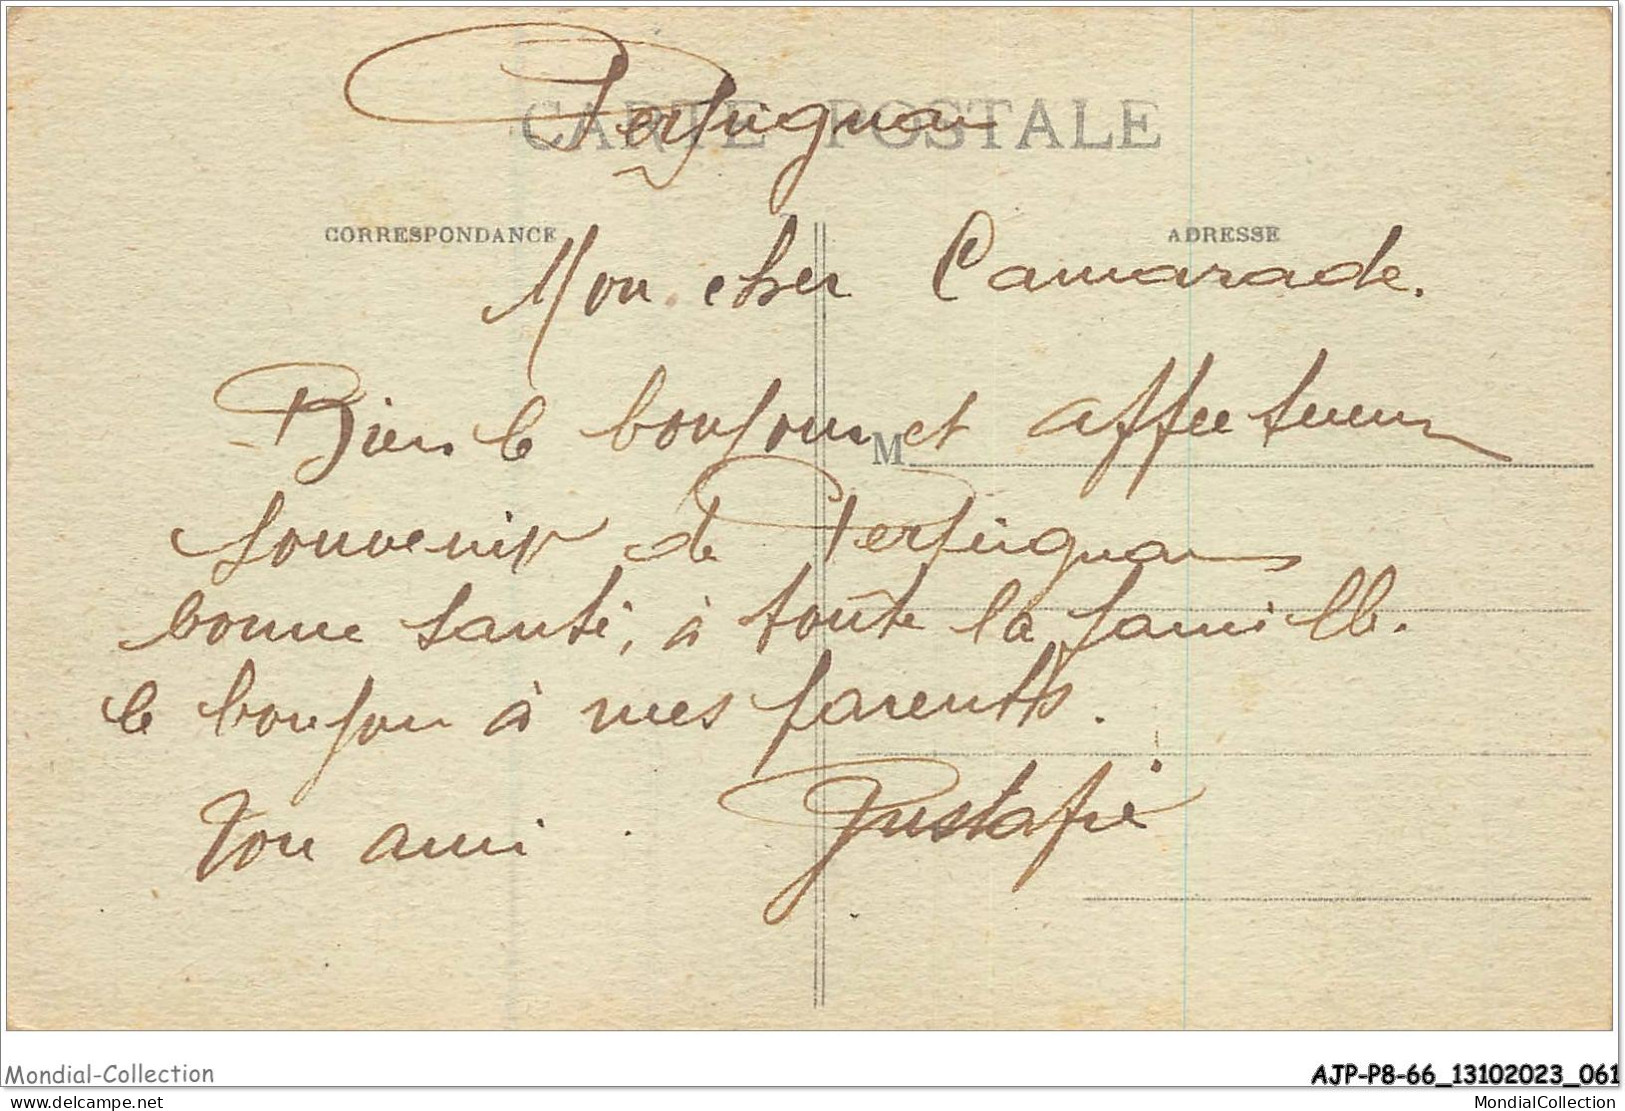 Perpignan
CARTE POSTALE
CORRESPONDANCE
ADRESSE
Mon cher Camarade.
Bien le bonjour et affectueux
M
souvenir de Perpignan
bonne santé, à toute la famille.
le bonjour à mes parents.
Ton ami
Mondial-Collection
AJP-P8-66_13102023_061
www.delcampe.net
MondialCollection